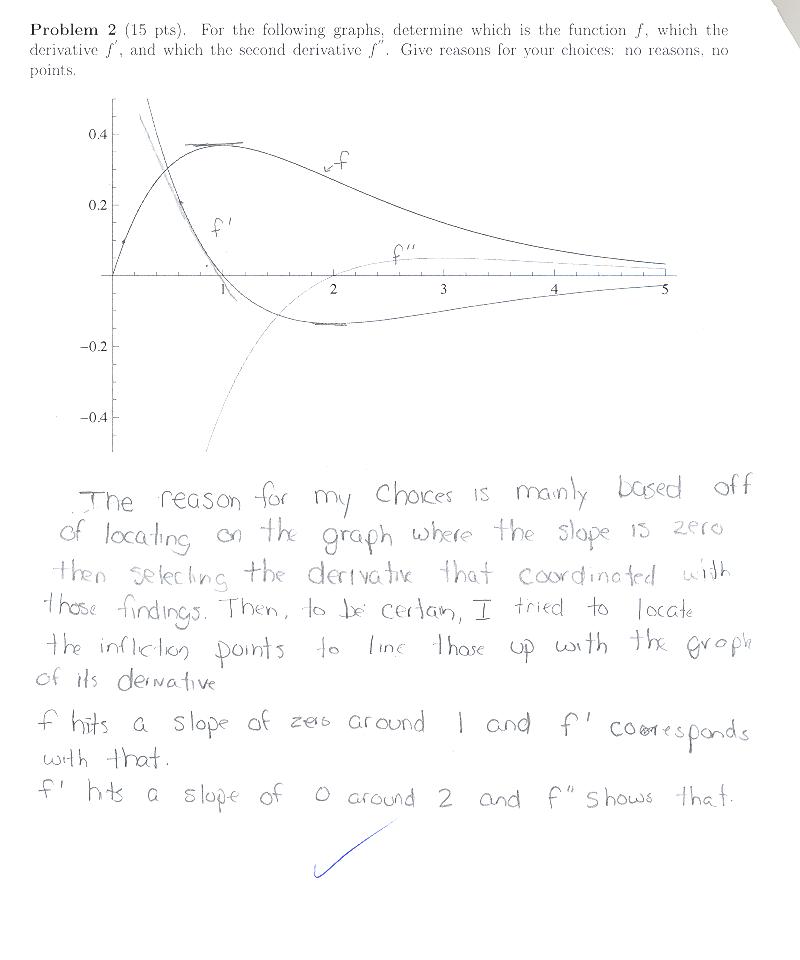 Problem 2 (15 pts). For the following graphs, determine which is the function f, which the
derivative f′, and which the second derivative f″. Give reasons for your choices: no reasons, no
points.
0.4
f
0.2
f'
f"
1 2 3 4 5
−0.2
−0.4
The reason for my choices is mainly based off
of locating on the graph where the slope is zero
then selecting the derivative that coordinated with
those findings. Then, to be certain, I tried to locate
the infliction points to line those up with the graph
of its derivative
f hits a slope of zero around 1 and f' corresponds
with that.
f' hits a slope of 0 around 2 and f" shows that.